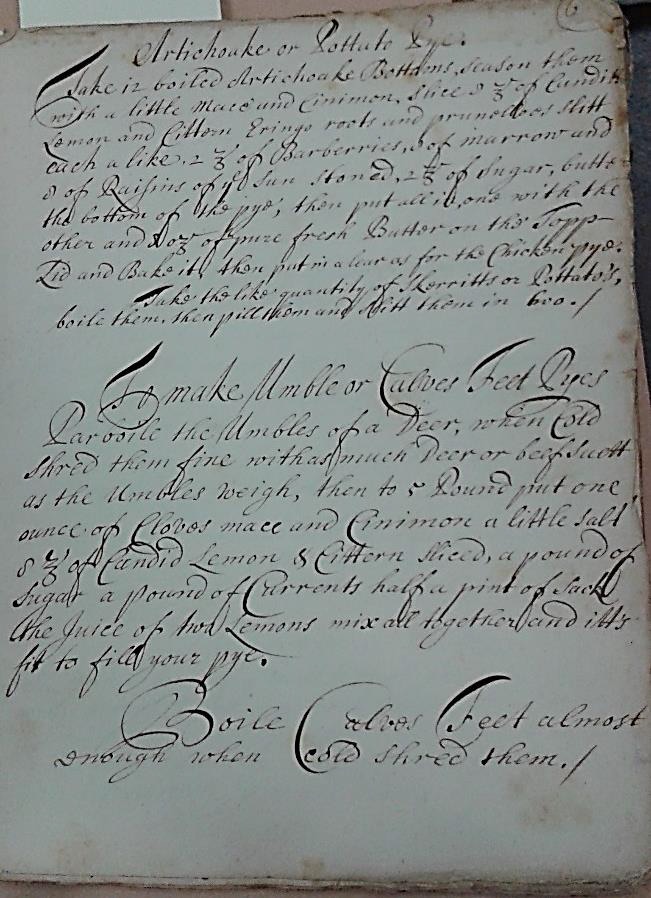 6
Artichoake or Pottato Pye.
Take 12 boiled Artichoake Bottoms, season them
with a little mace and Cinimon, slice 8 ℥ of Candid
Lemon and Cittern Eringo roots and prunelloes slitt
each a like, 2 ℥ of Barberries, of marrow and
8 of Raisins of ye Sun stoned, 2 ℥ of Sugar, butter
the bottom of the pye, then put all in, one with the
other and 8 oz of pure fresh Butter on the Topp
Lid and Bake it, then put in a lear as for the Chicken pye.
Take the like quantity of Skerritts or Pottato's,
boile them, then pill them and slitt them in two. /
To make Umble or Calves Feet Pyes
Parboile the Umbles of a Deer, when Cold
shred them fine with as much Deer or beef suett
as the Umbles weigh, then to 5 Pound put one
ounce of Cloves mace and Cinimon a little salt
8 ℥ of Candid Lemon & Cittern sliced, a pound of
sugar a pound of Currents half a pint of sack
the Juice of two Lemons mix all together, and itts
fit to fill your pye.
Boile Calves Feet almost
enough when Cold shred them. /